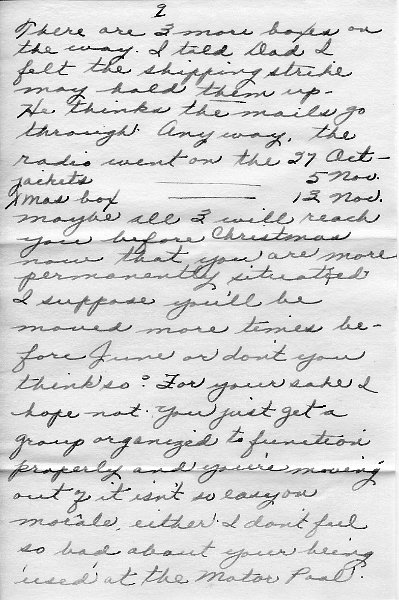 2
There are 3 more boxes on
the way. I told Dad I
felt the shipping strike
may hold them up-
He thinks the mails go
through. Anyway, the
radio went on the 27 Oct-
jackets 5 Nov.
Xmas box 13 Nov.
maybe all 3 will reach
you before Christmas
now that you are more
permanently situated?
I suppose you'll be
moved more times be-
fore June or don't you
think so? For your sake I
hope not. You just get a
group organized to function
properly and you're moving
out of it isn't so easy on
morale, either. I don't feel
so bad about your being
'used' at the Motor Pool.